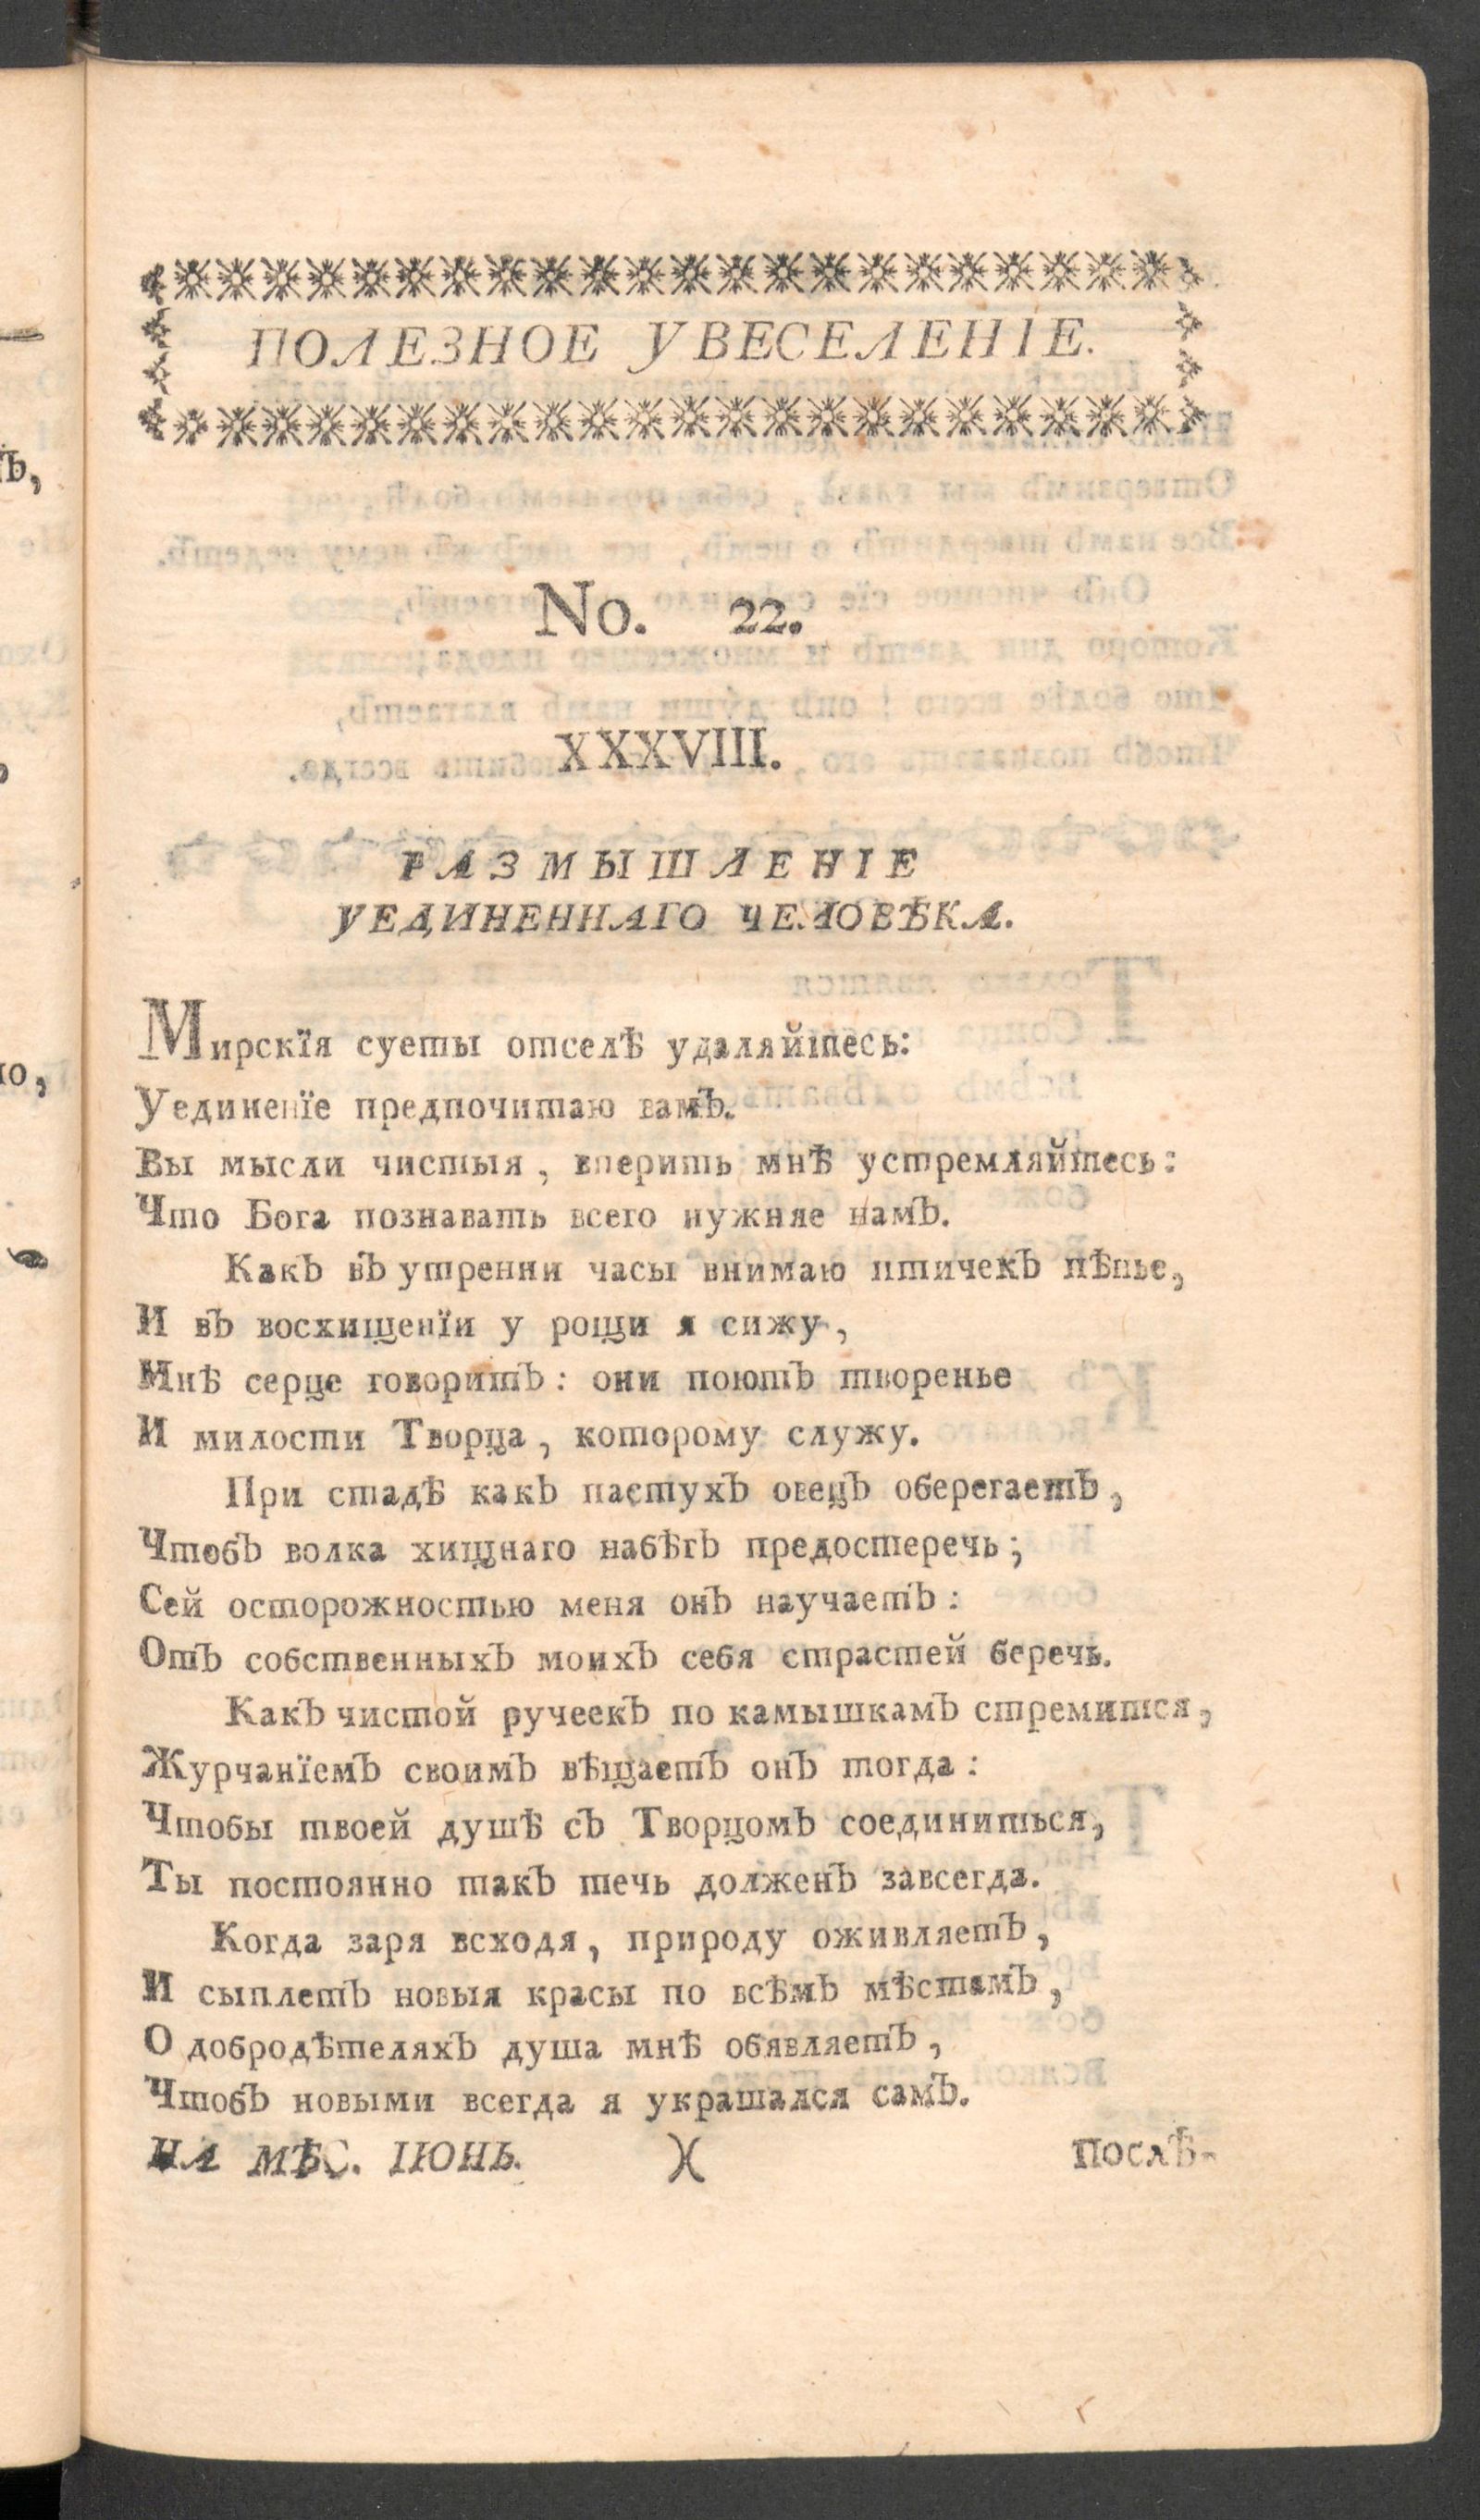 ПОЛЕЗНОЕ УВЕСЕЛЕНІЕ.
No. 22.
XXXVIII.
РАЗМЫШЛЕНІЕ
УЕДИНЕННАГО ЧЕЛОВѢКА.
Мирскїя суеты отселѣ удаляйтесь:
Уединенїе предпочитаю вамъ.
Вы мысли чистыя, вперить мнѣ устремляйтесь:
Что Бога познавать всего нужняе намъ.
Какъ въ утренни часы внимаю птичекъ пѣнье,
И въ восхищенїи у рощи я сижу,
Мнѣ серце говоритъ: они поютъ творенье
И милости Творца, которому служу.
При стадѣ какъ пастухъ овецъ оберегаетъ,
Чтобъ волка хищнаго набѣгъ предостеречь;
Сей осторожностью меня онъ научаетъ:
Отъ собственныхъ моихъ себя страстей беречь.
Какъ чистой ручеекъ по камышкамъ стремится,
Журчанїемъ своимъ вѣщаетъ онъ тогда:
Чтобы твоей душѣ съ Творцомъ соединиться,
Ты постоянно такъ течь долженъ завсегда.
Когда заря всходя, природу оживляетъ,
И сыплетъ новыя красы по всѣмъ мѣстамъ,
О добродѣтеляхъ душа мнѣ обявляетъ,
Чтобъ новыми всегда я украшался самъ.
НА МѢС. ІЮНЬ. )( Послѣ-